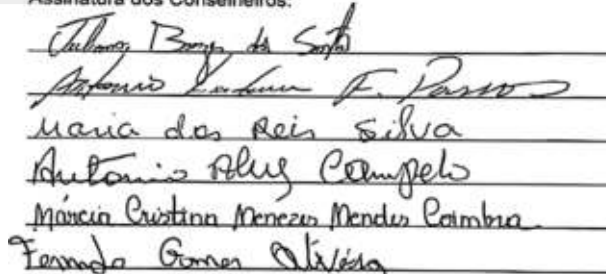 Assinatura dos Conselheiros:
Juliana Borges dos Santos
Antonio F. Passos
Maria dos Reis Silva
Antonio Alves Campelo
Márcia Cristina Menezes Mendes Coimbra
Fernando Gomes Oliveira